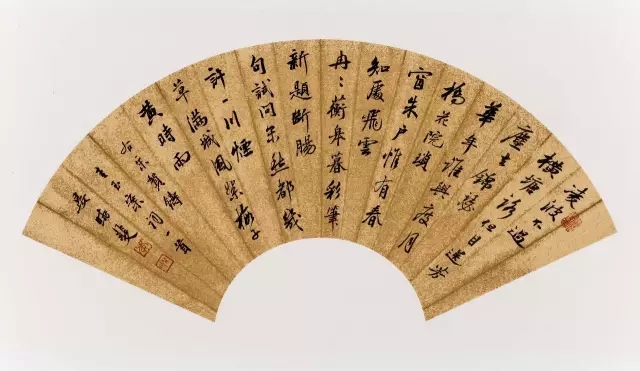 凌波不過
橫塘路但目送芳
塵去錦瑟
華年誰與度月
橋花院瑣
窗朱戶惟有春
知處飛雲
冉〻蘅皋暮彩筆
新題斷腸
句試問閒愁都幾
許一川煙
草滿城風絮梅子
黃時雨
右宋賀鑄
青玉案詞一首